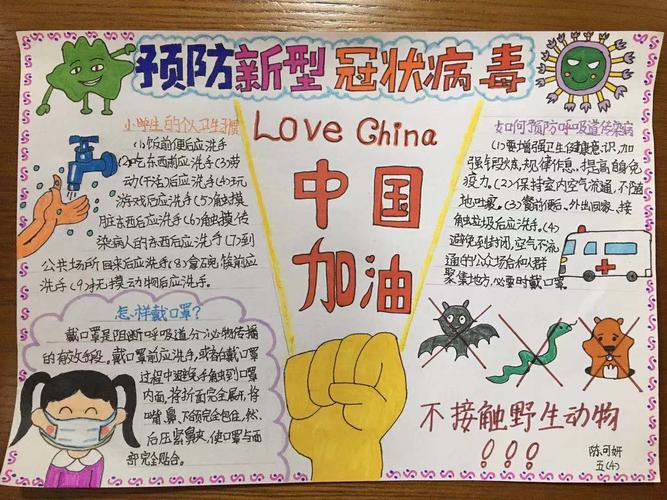 预防新型冠状病毒
小学生的个人卫生习惯
(1)饭前便后应洗手
(2)吃东西前应洗手(3)劳
动(干活)后应洗手(4)玩
游戏后应洗手(5)触摸
脏东西后应洗手(6)触摸传
染病人的东西后应洗手(7)到
公共场所回来后应洗手(8)拿碗筷前应
洗手(9)抚摸动物后应洗手。
怎样戴口罩?
戴口罩是阻断呼吸道分泌物传播
的有效手段。戴口罩前应洗手,或者在戴口罩
过程中避免手触到口罩
内面,将折面完全展示,将
嘴、鼻、下颌完全包住,然
后压紧鼻夹,使口罩与面
部完全贴合。
Love China
中国
加油
如何预防呼吸道传染病
(1)要增强卫生健康意识,加
强锻炼,规律作息,提高自身免
疫力。(2)保持室内空气流通,不随
地吐痰。(3)餐前便后、外出回家、接
触垃圾后应洗手。(4)
避免到封闭,空气不流
通的公众场合和人群
聚集地方,必要时戴口罩。
不接触野生动物
!!!
陈可妍
五(4)